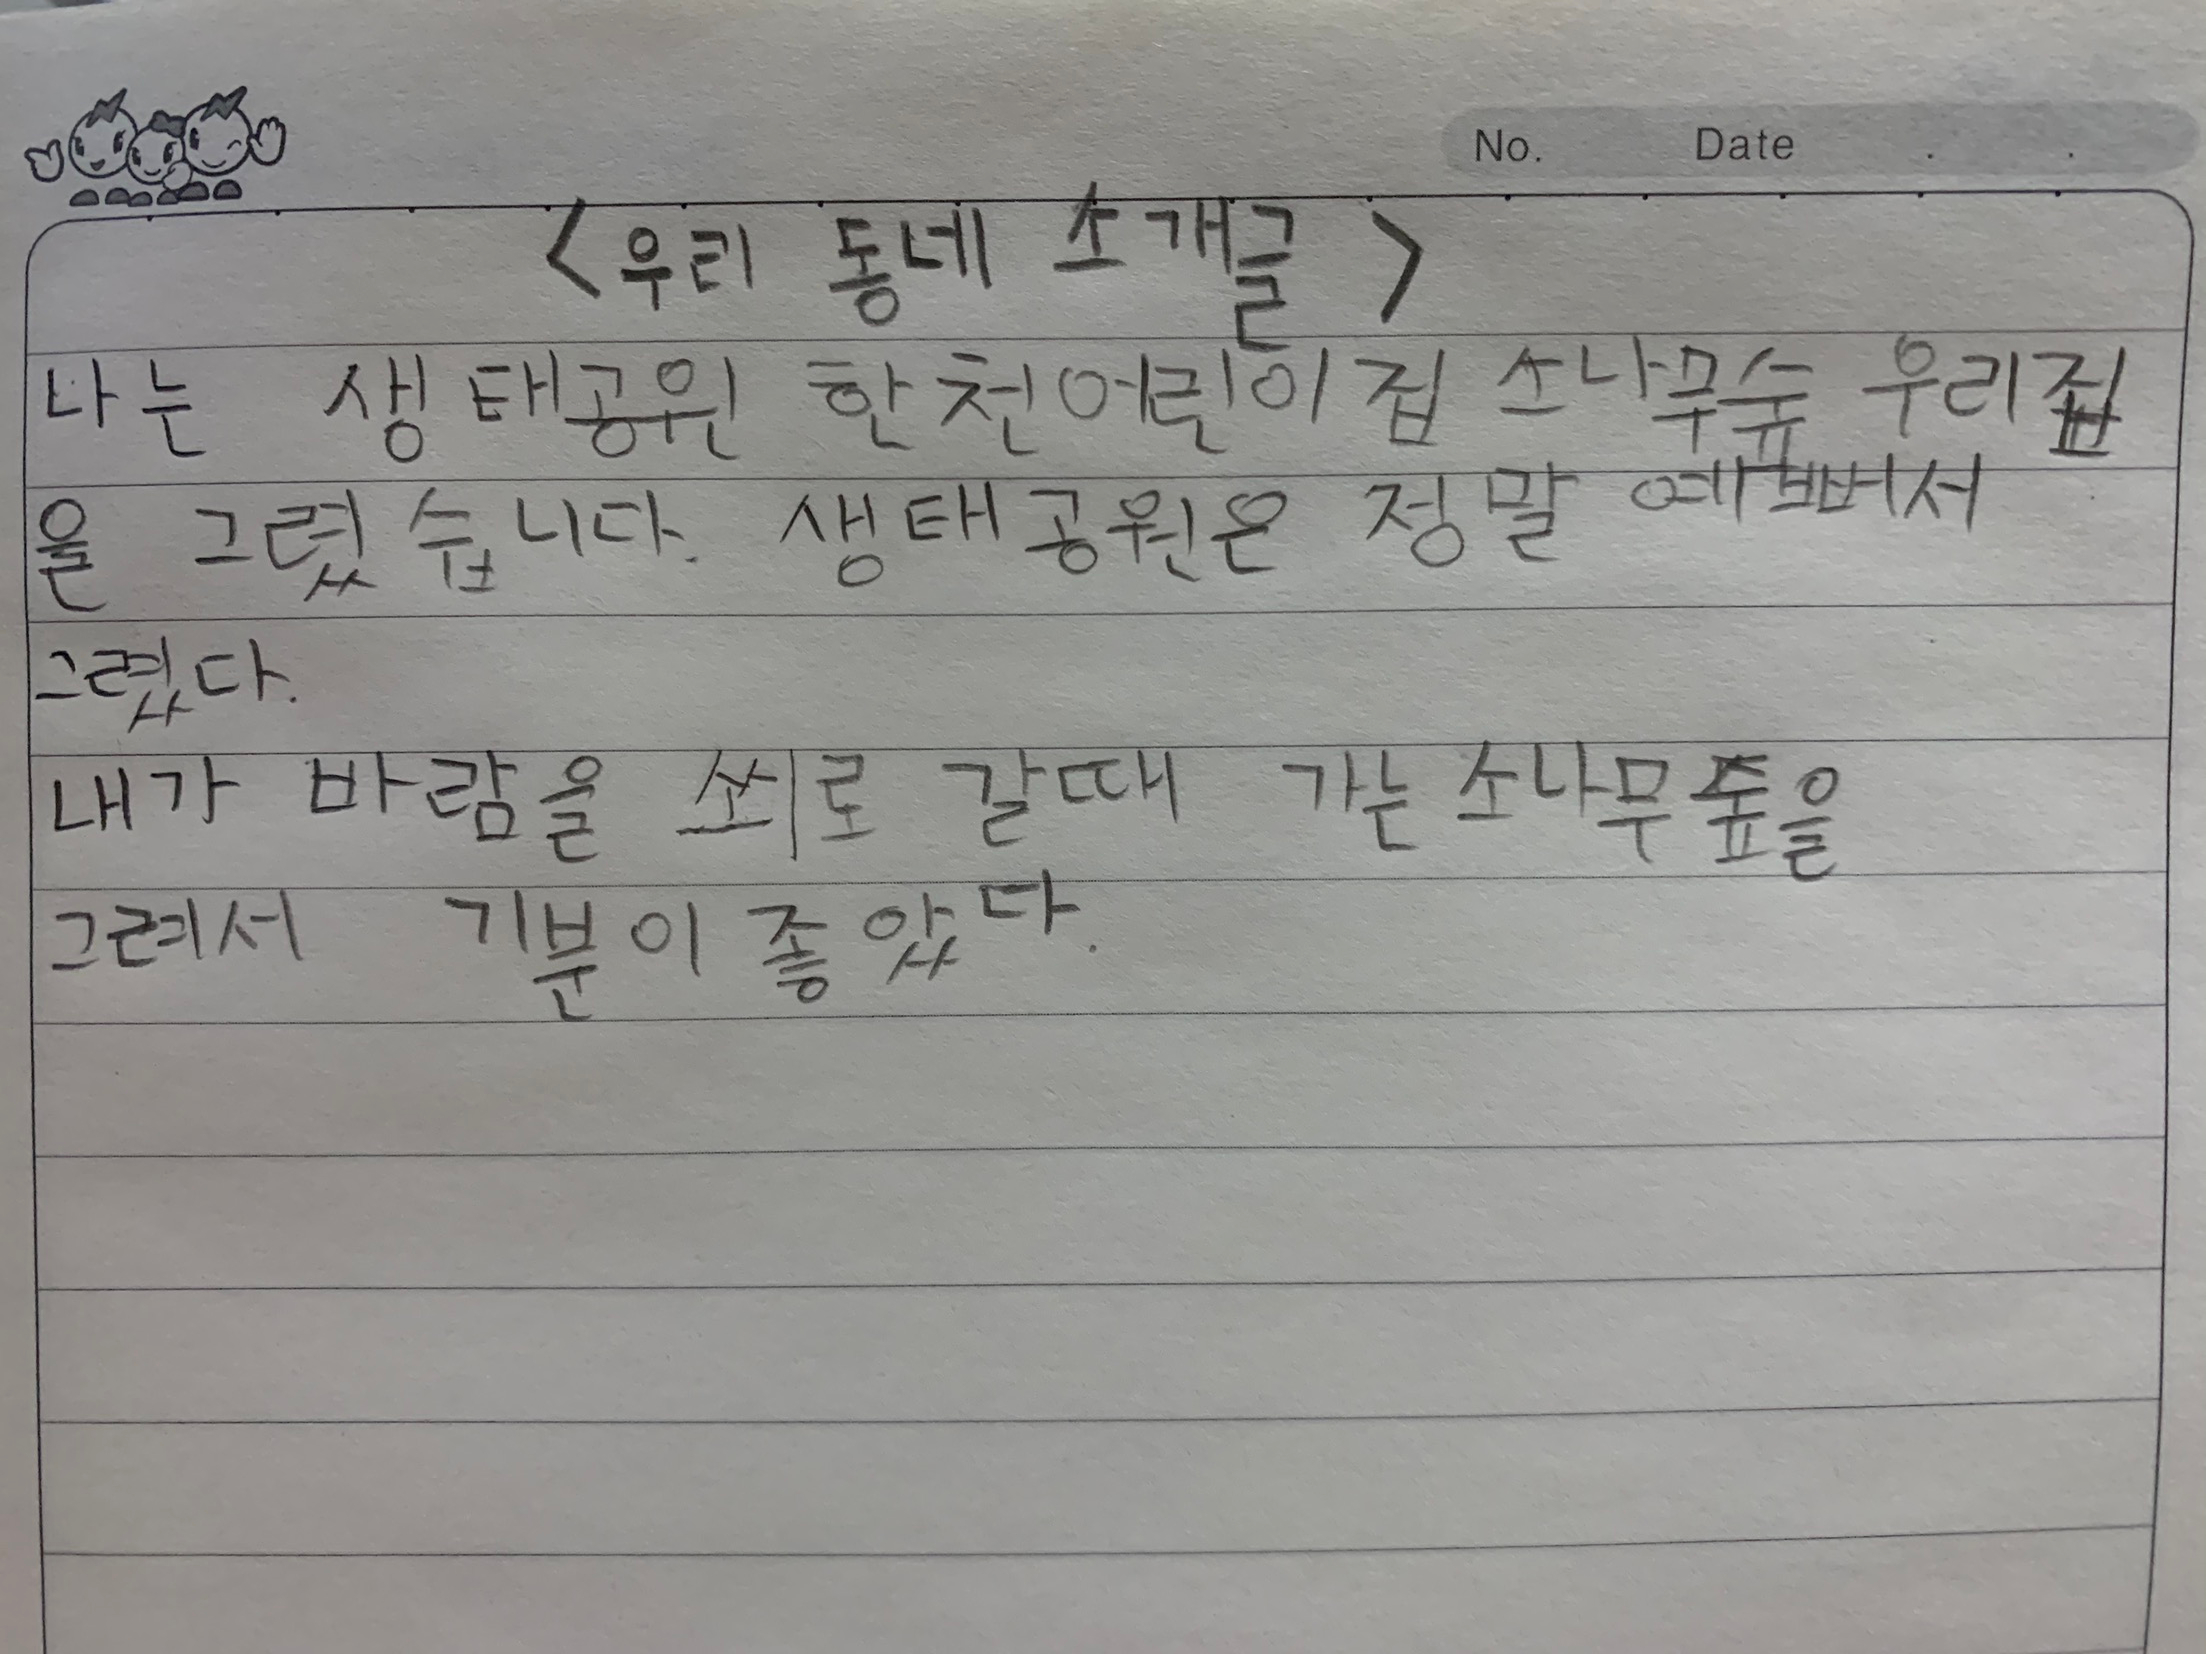 No. Date . .
<우리 동네 소개글>
나는 생태공원 한천어린이집 소나무숲 우리집
을 그렸습니다. 생태공원은 정말 예뻐서
그렸다.
내가 바람을 쐬로 갈때 가는 소나무숲을
그려서 기분이 좋았다.